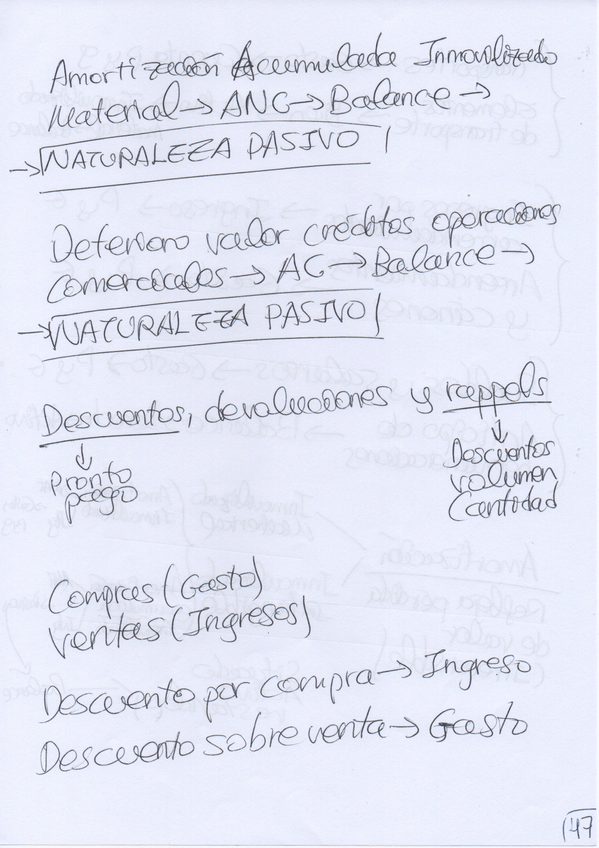 Amortización Acumulada Inmovilizado
Material → ANC → Balance →
→ NATURALEZA PASIVO
Deterioro valor créditos operaciones
comerciales → AC → Balance →
→ NATURALEZA PASIVO
Descuentos, devoluciones y rappels
↓ ↓
Pronto pago
Descuentos
volumen
(cantidad
Compras (Gasto)
Ventas (Ingresos)
Descuento por compra → Ingreso
Descuento sobre venta → Gasto
147